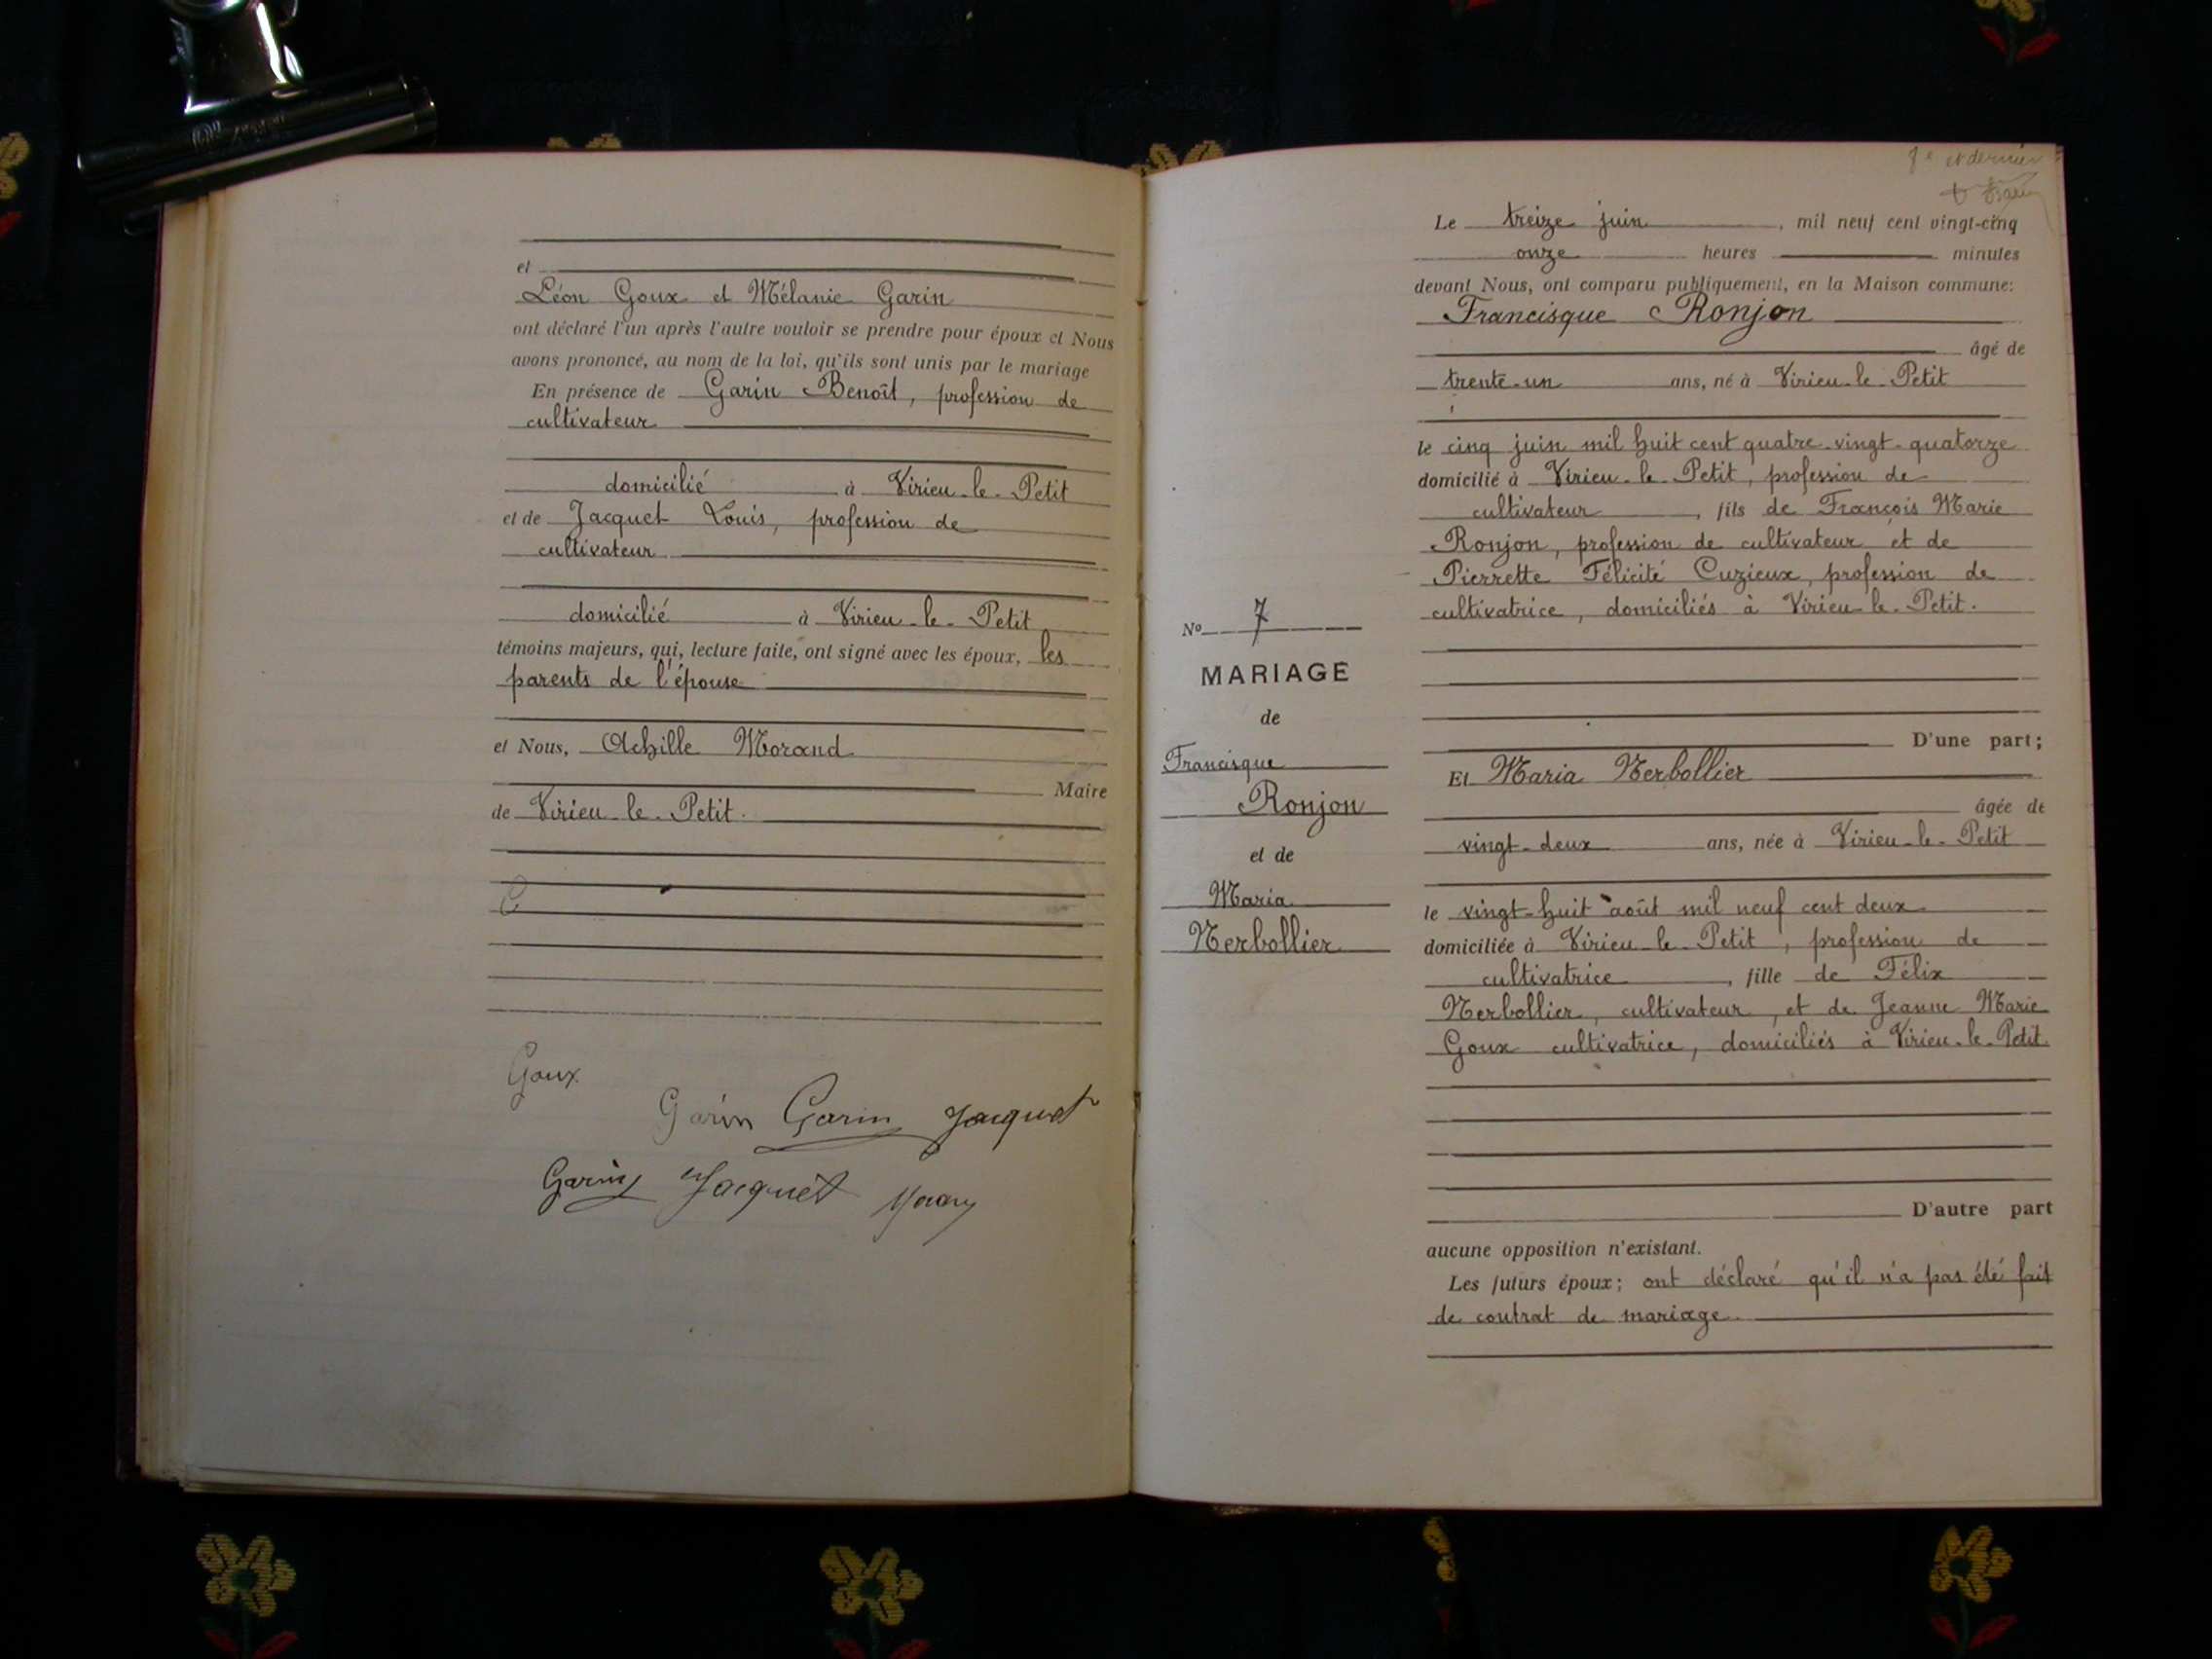 et
Léon Goux et Mélanie Garin
ont déclaré l'un après l'autre vouloir se prendre pour époux et Nous
avons prononcé, au nom de la loi, qu'ils sont unis par le mariage
En présence de Garin Benoît, profession de
cultivateur
domicilié à Virieu-le-Petit
et de Jacquet Louis, profession de
cultivateur
domicilié à Virieu-le-Petit
témoins majeurs, qui, lecture faite, ont signé avec les époux, les
parents de l'épouse
et Nous, Achille Morand
Maire
de Virieu-le-Petit.
Goux
Garin Garin Jacquet
Garin Jacquet
et dernier
Le treize juin, mil neuf cent vingt-cinq
onze heures minutes
devant Nous, ont comparu publiquement, en la Maison commune:
Francisque Ronjon
âgé de
trente-un ans, né à Virieu-le-Petit
le cinq juin mil huit cent quatre-vingt-quatorze
domicilié à Virieu-le-Petit, profession de
cultivateur, fils de François Marie
Ronjon, profession de cultivateur et de
Pierrette Félicité Cuzieux, profession de
cultivatrice, domiciliés à Virieu-le-Petit.
D'une part;
Et Maria Nerbollier
âgée de
vingt-deux ans, née à Virieu-le-Petit
le vingt-huit août mil neuf cent deux
domiciliée à Virieu-le-Petit, profession de
cultivatrice, fille de Félix
Nerbollier, cultivateur, et de Jeanne Marie
Goux cultivatrice, domiciliés à Virieu-le-Petit
D'autre part
aucune opposition n'existant.
Les futurs époux; ont déclaré qu'il n'a pas été fait
de contrat de mariage
No 7
MARIAGE
de
Francisque
Ronjon
et de
Maria
Nerbollier